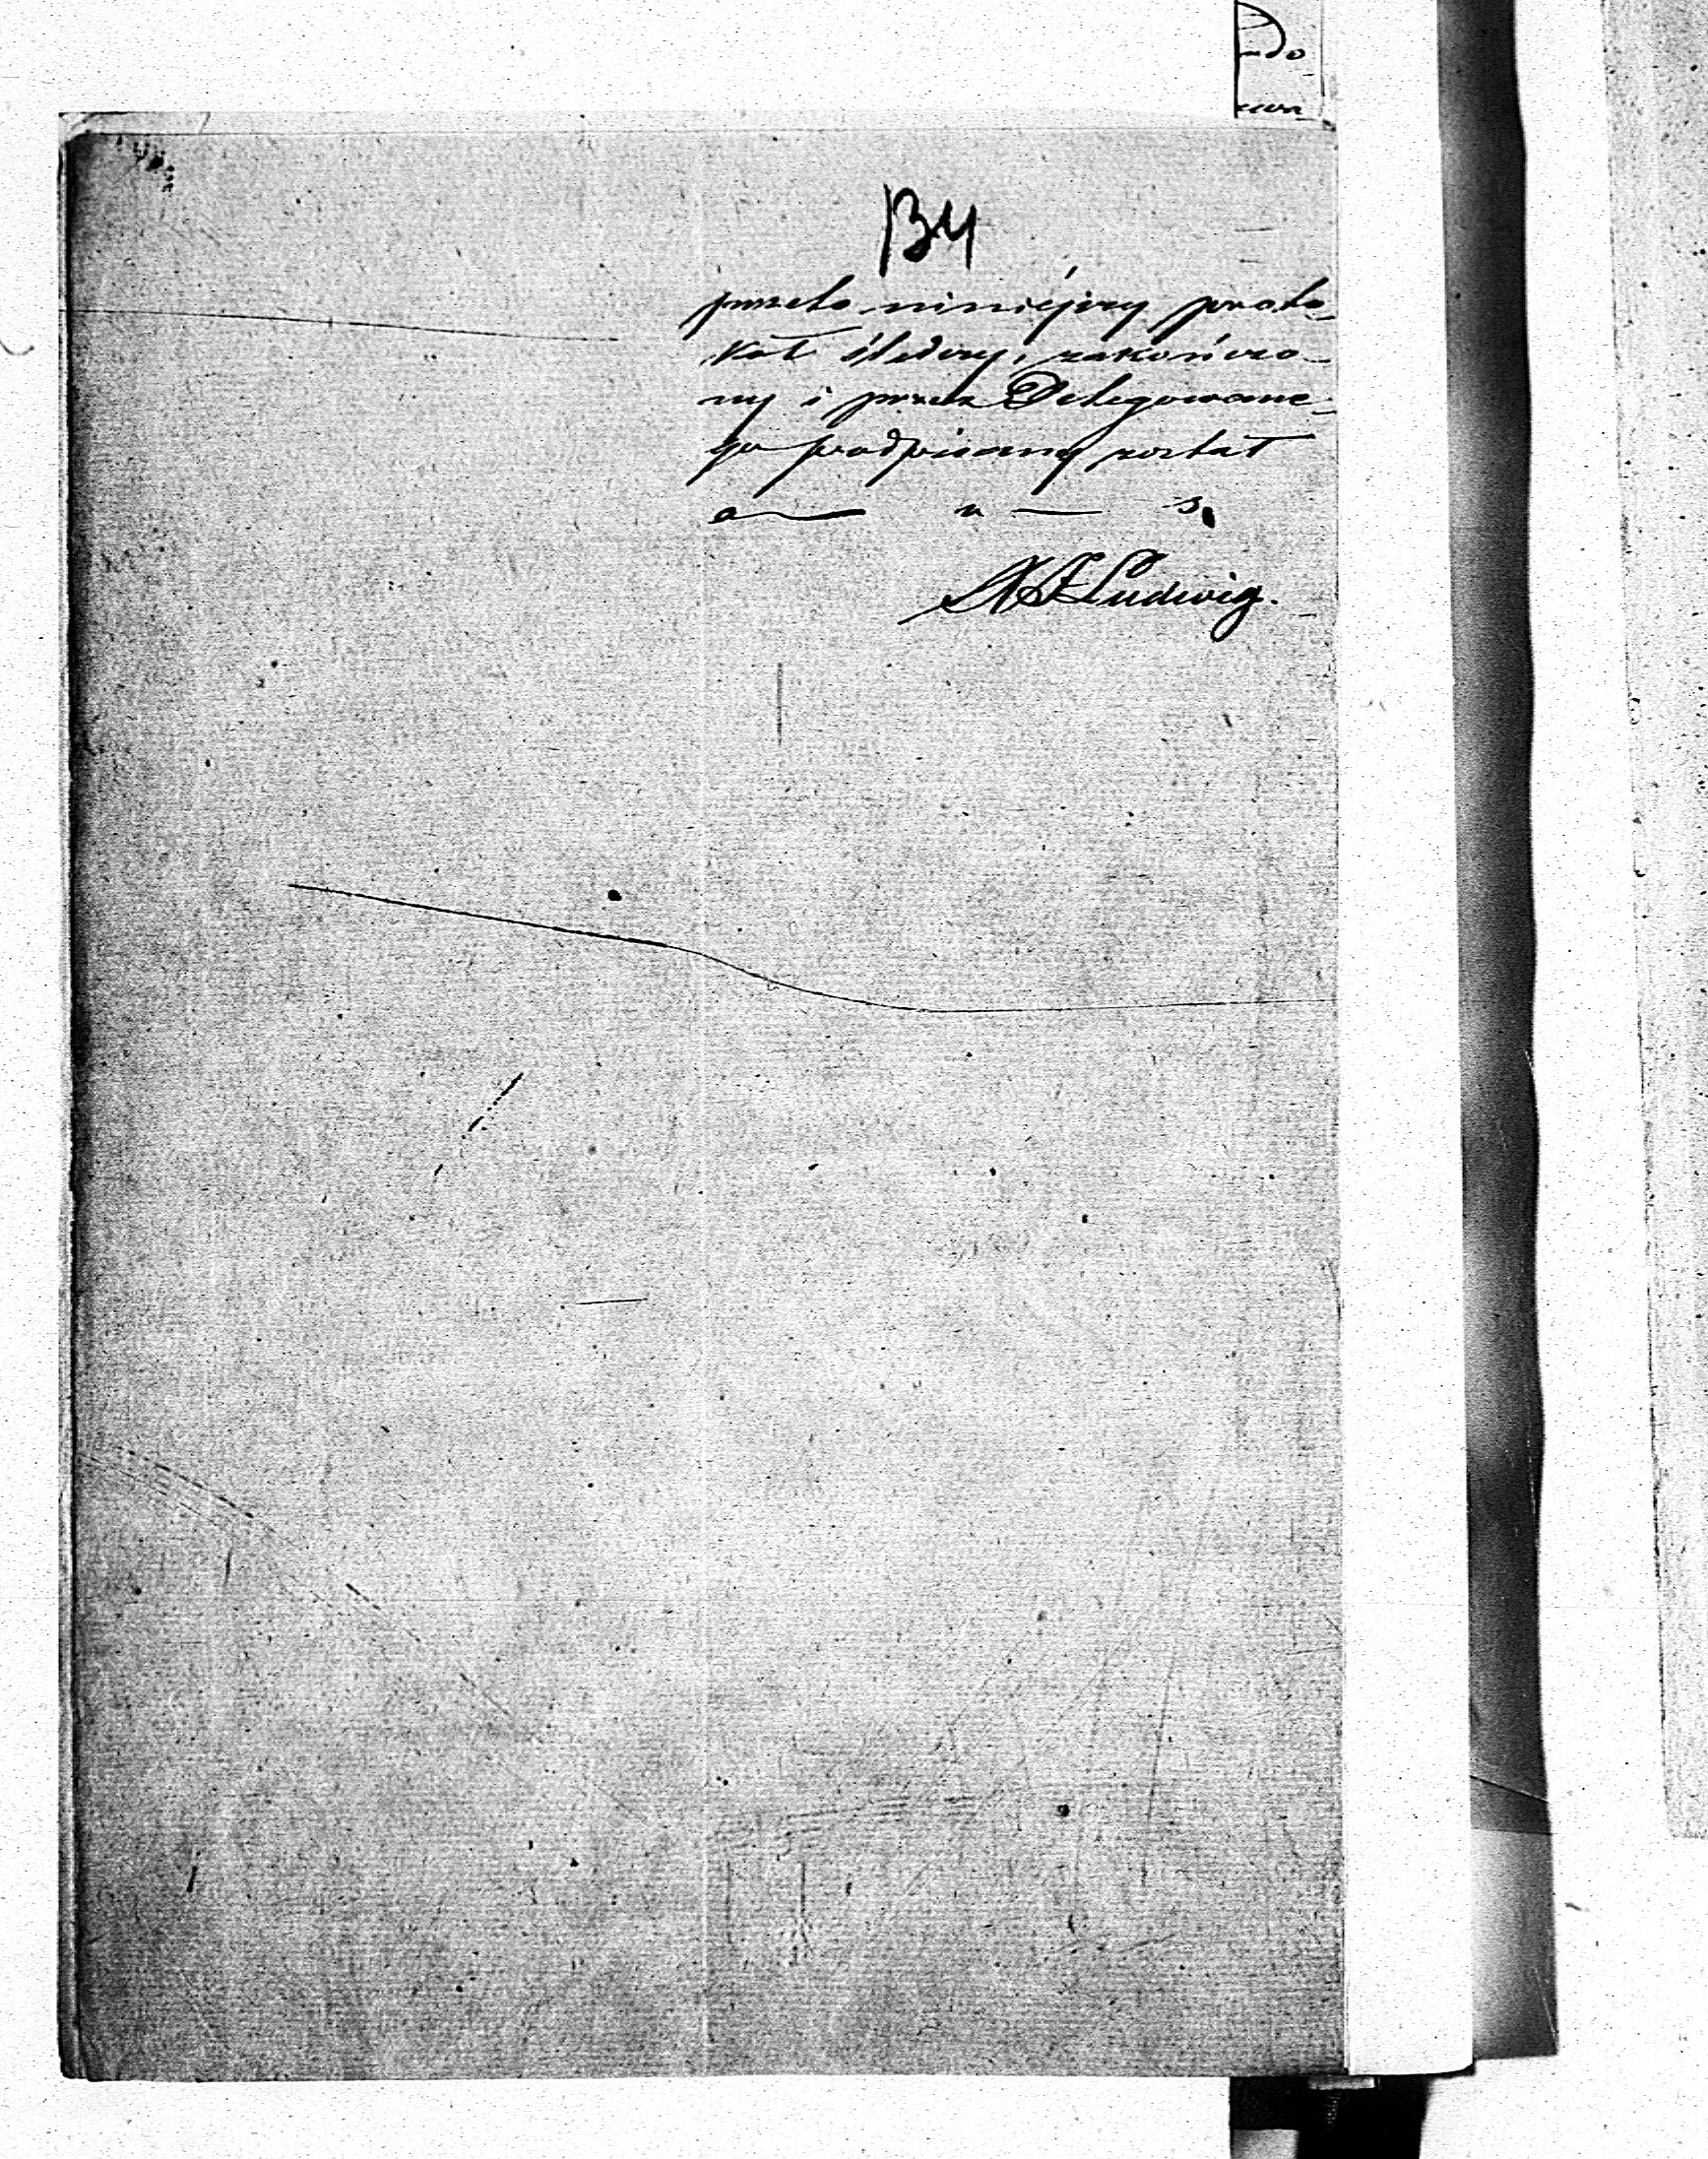 134
przeto niniejszy proto-
kół śledczy, zakończo-
ny i przez Delegowane-
go podpisany został
a u s.
Ludwig.